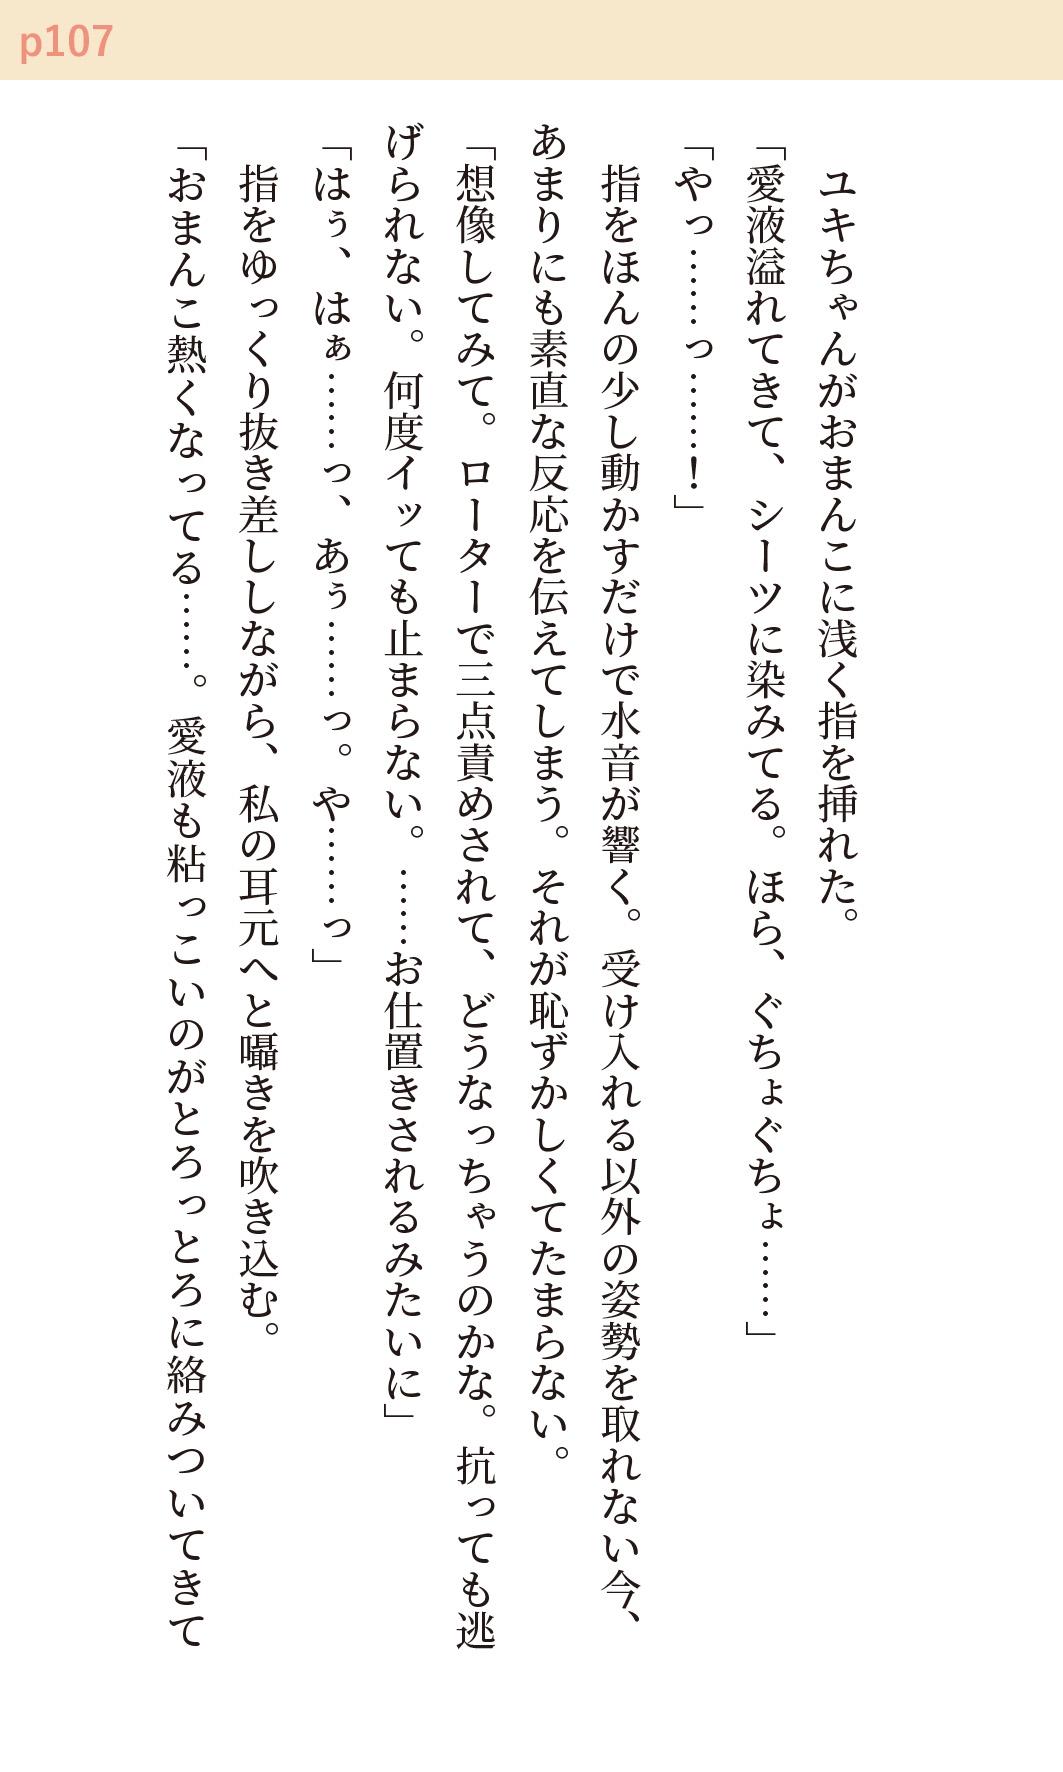 p107
　ユキちゃんがおまんこに浅く指を挿れた。
「愛液溢れてきて、シーツに染みてる。ほら、ぐちょぐちょ……」
「やっ……っ……！」
　指をほんの少し動かすだけで水音が響く。受け入れる以外の姿勢を取れない今、
あまりにも素直な反応を伝えてしまう。それが恥ずかしくてたまらない。
「想像してみて。ローターで三点責めされて、どうなっちゃうのかな。抗っても逃
げられない。何度イッても止まらない。……お仕置きされるみたいに」
「はぅ、はぁ……っ、あぅ……っ。や……っ」
　指をゆっくり抜き差ししながら、私の耳元へと囁きを吹き込む。
「おまんこ熱くなってる……。愛液も粘っこいのがとろっとろに絡みついてきて